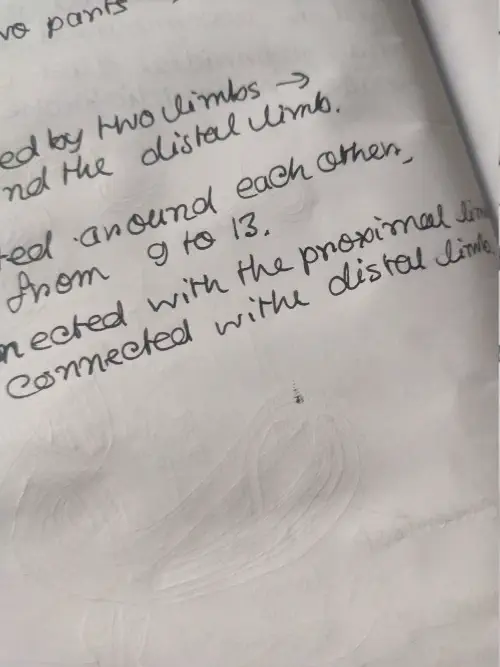 vo parts
ed by two limbs →
nd the distal limb.
ted around each other.
from 9 to 13.
nected with the proximal lim
connected withe distal limb.